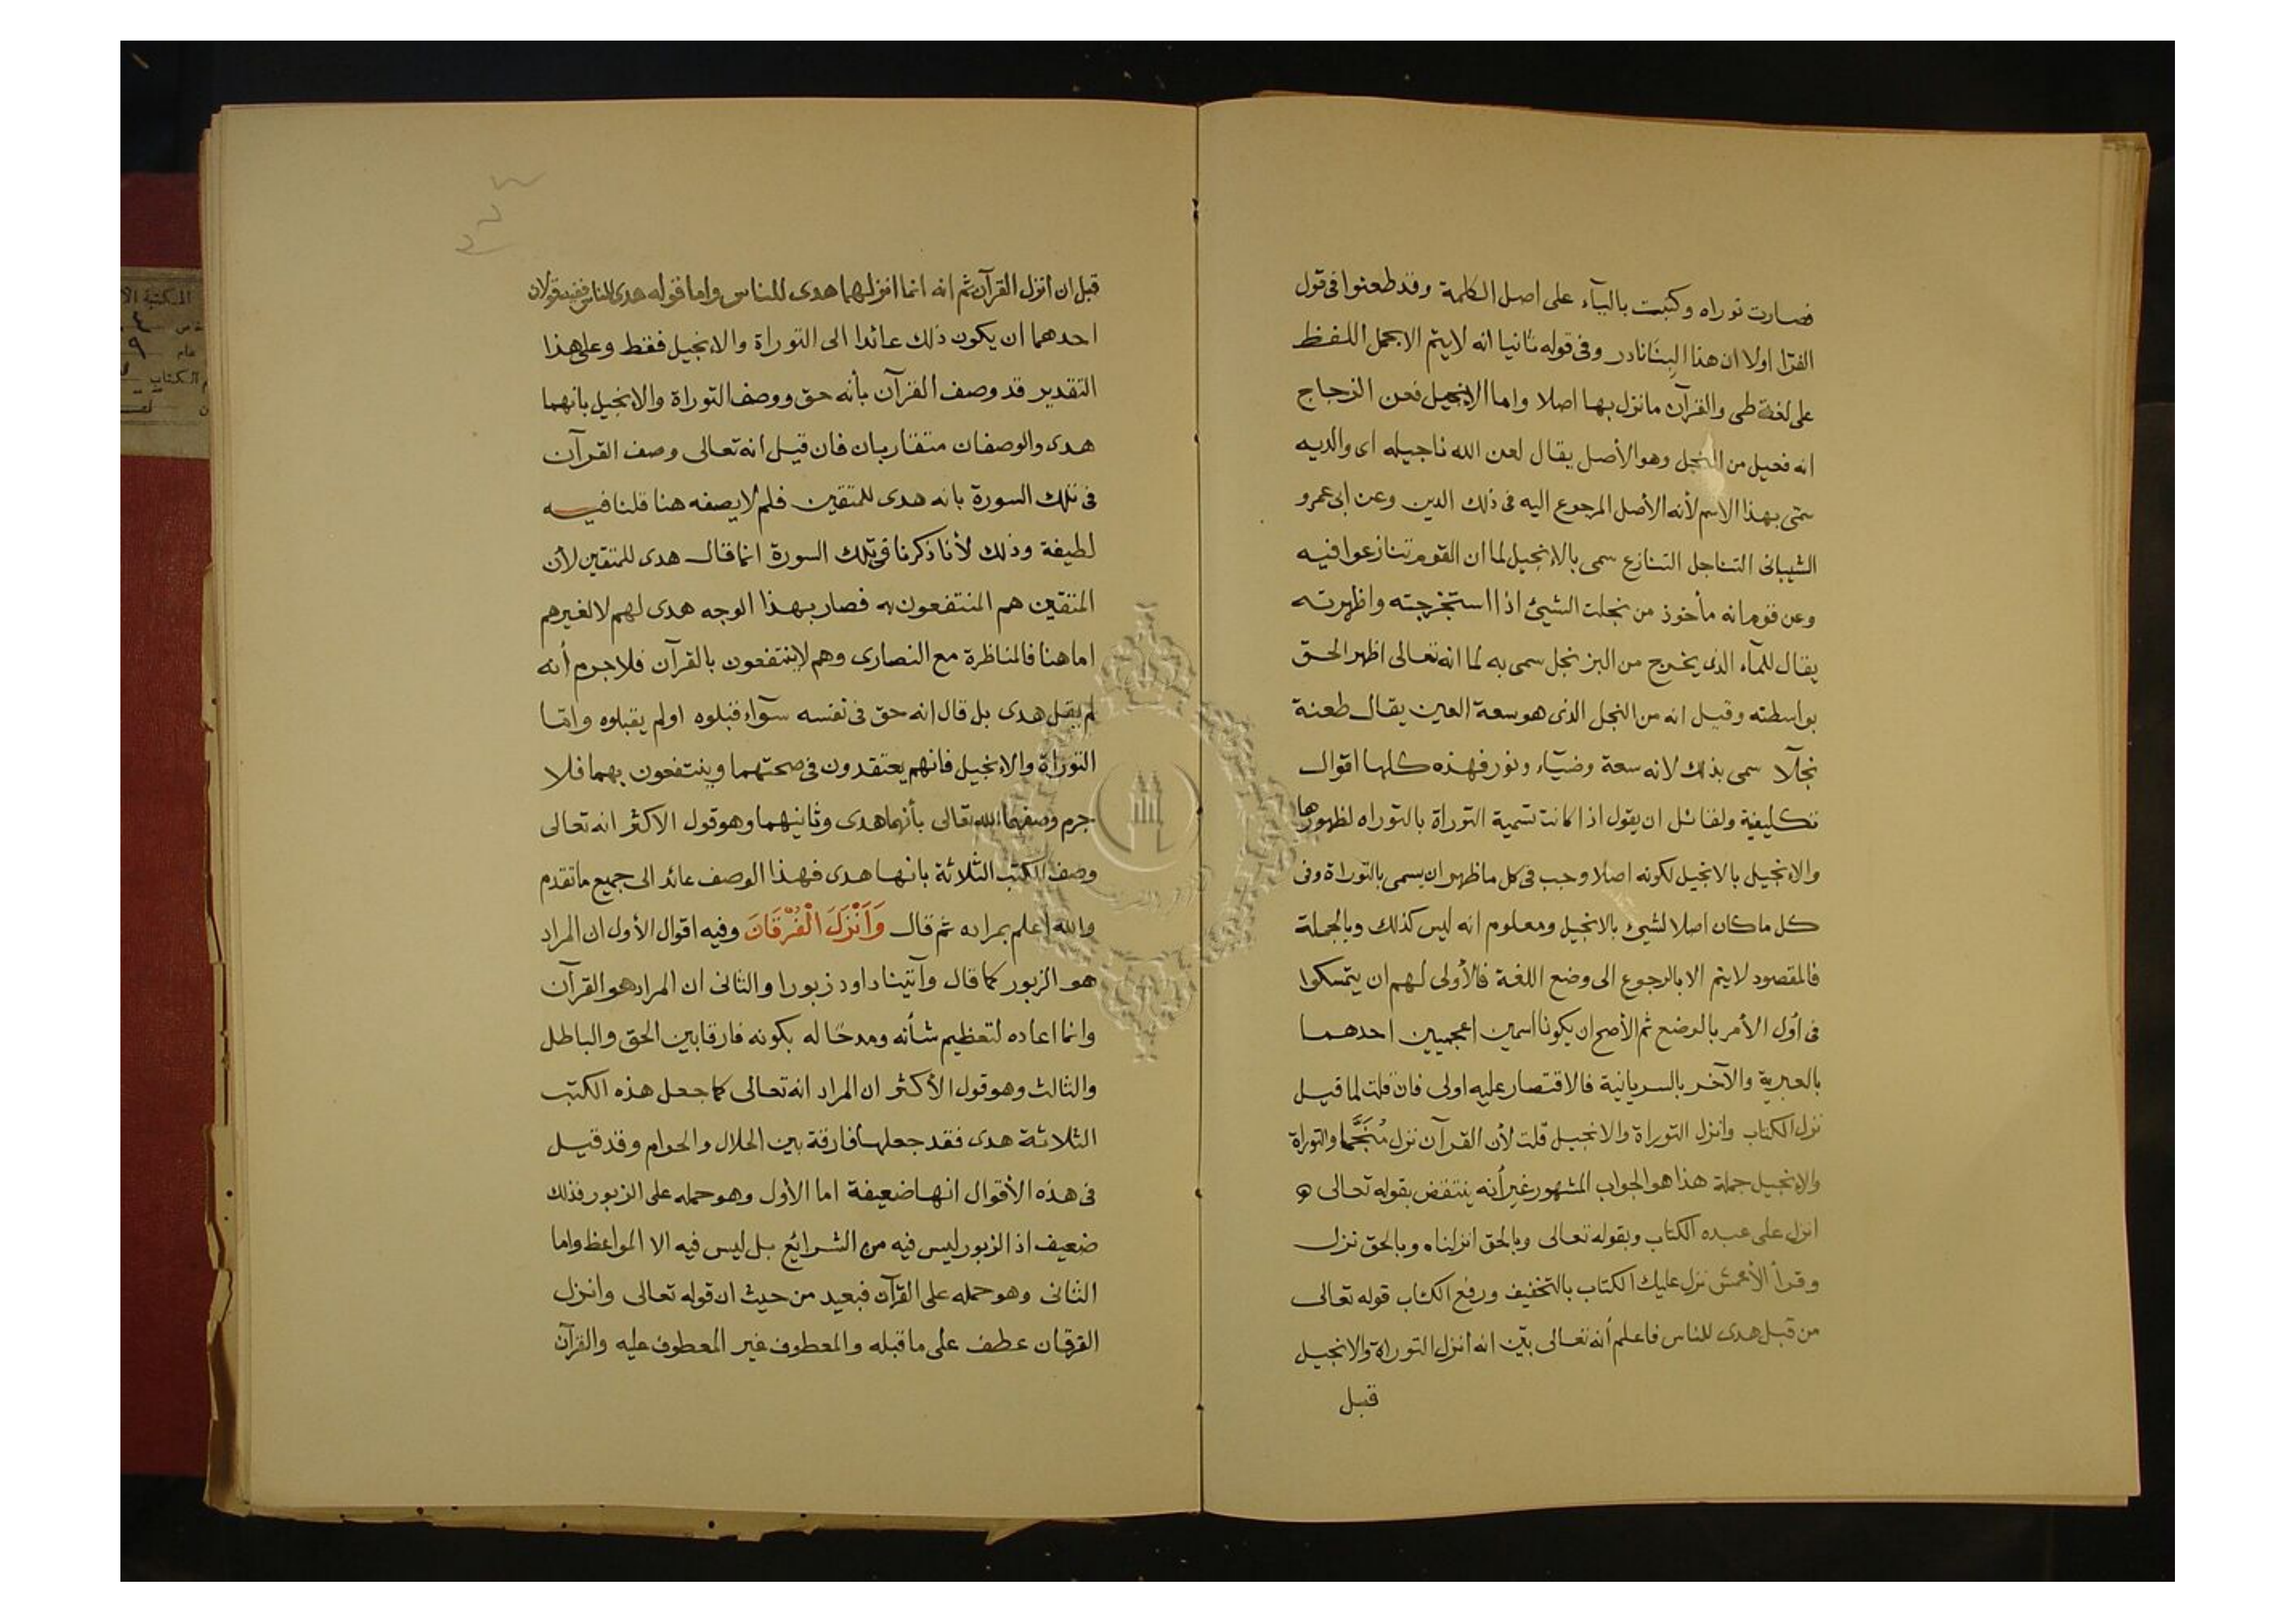 فصارت توراه وكتبت باليآء على اصل الكلمة وقد طعنوا فى قول
الفرّا اولا ان هذا البنا نادر وفى قوله ثانيا انه لا يتم الا بحمل اللفظ
على لغة طى والقرآن ما نزل بها اصلا واما الانجيل فعن الزجاج
انه فعيل من النجل وهو الأصل يقال لعن الله ناجيله اى والديه
سمّى بهذا الاسم لأنه الأصل المرجوع اليه فى ذلك الدين وعن ابى عمرو
الشيبانى التناجل التنازع سمى بالانجيل لما ان القوم تنازعوا فيه
وعن قوم انه مأخوذ من نجلت الشيئ اذا استخرجته واظهرته
يقال للمآء الذى يخرج من البز نجل سمى به لما انه تعالى اظهر الحق
بواسطته وقيل انه من النجل الذى هو سعة العين يقال طعنة
نجلآ سمى بذلك لانه سعة وضيآء ونور فهذه كلها اقوال
تكليفية ولقائل ان يقول اذا كانت تسمية التوراة بالتوراه لظهورها
والانجيل بالانجيل لكونه اصلا وجب فى كل ما ظهر ان يسمى بالتوراة وفى
كل ما كان اصلا لشيئ بالانجيل ومعلوم انه ليس كذلك وبالجملة
فالمقصود لا يتم الا بالرجوع الى وضع اللغة فالأولى لهم ان يتمسكوا
فى أول الأمر بالوضع ثم الأصح ان يكونا اسمين اعجميين احدهما
بالعبرية والآخر بالسريانية فالاقتصار عليه اولى فان قلت لما قيل
نزل الكتاب وانزل التوراة والانجيل قلت لأن القرآن نزل مُنَجَّما والتوراة
والانجيل جملة هذا هو الجواب المشهور غير أنه ينتقض بقوله تعالى
انزل على عبده الكتاب وبقوله تعالى وبالحق انزلناه وبالحق نزل
وقرأ الأعمش نزل عليك الكتاب بالتخفيف ورفع الكتاب قوله تعالى
من قبل هدى للناس فاعلم أنه تعالى بيّن انه انزل التوراة والانجيل
قبل
قبل ان انزل القرآن ثم انه انما انزلهما هدى للناس واما قوله هدى للناس ففيه قولان
احدهما ان يكون ذلك عائدا الى التوراة والانجيل فقط وعلى هذا
التقدير قد وصف القرآن بأنه حق ووصف التوراة والانجيل بانهما
هدى والوصفان متقاربان فان قيل انه تعالى وصف القرآن
فى تلك السورة بانه هدى للمتقين فلم لا يصفه هنا قلنا فيه
لطيفة وذلك لأنا ذكرنا فى تلك السورة انما قال هدى للمتقين لأن
المتقين هم المنتفعون به فصار بهذا الوجه هدى لهم لا لغيرهم
اما هنا فالمناظرة مع النصارى وهم لا ينتفعون بالقرآن فلا جرم أنه
لم يقل هدى بل قال انه حق فى نفسه سوآء قبلوه او لم يقبلوه وامّا
التوراة والانجيل فانهم يعتقدون فى صحتهما وينتفعون بهما فلا
جرم وصفهما الله تعالى بأنهما هدى وثانيهما وهو قول الاكثر انه تعالى
وصف الكتب الثلاثة بانها هدى فهذا الوصف عائد الى جميع ما تقدم
والله اعلم بمراده ثم قال وَاَنْزَلَ الْفُرْقَانَ وفيه اقوال الأول ان المراد
هو الزبور كما قال وآتينا داود زبورا والثانى ان المراد هو القرآن
وانما اعاده لتعظيم شأنه ومدحًا له بكونه فارقا بين الحق والباطل
والثالث وهو قول الأكثر ان المراد انه تعالى كما جعل هذه الكتب
الثلاثة هدى فقد جعلها فارقة بين الحلال والحرام وقد قيل
فى هذه الأقوال انها ضعيفة اما الأول وهو حمله على الزبور فذلك
ضعيف اذ الزبور ليس فيه من الشرايع بل ليس فيه الا المواعظ واما
الثانى وهو حمله على القرآن فبعيد من حيث ان قوله تعالى وانزل
الفرقان عطف على ما قبله والمعطوف غير المعطوف عليه والقرآن